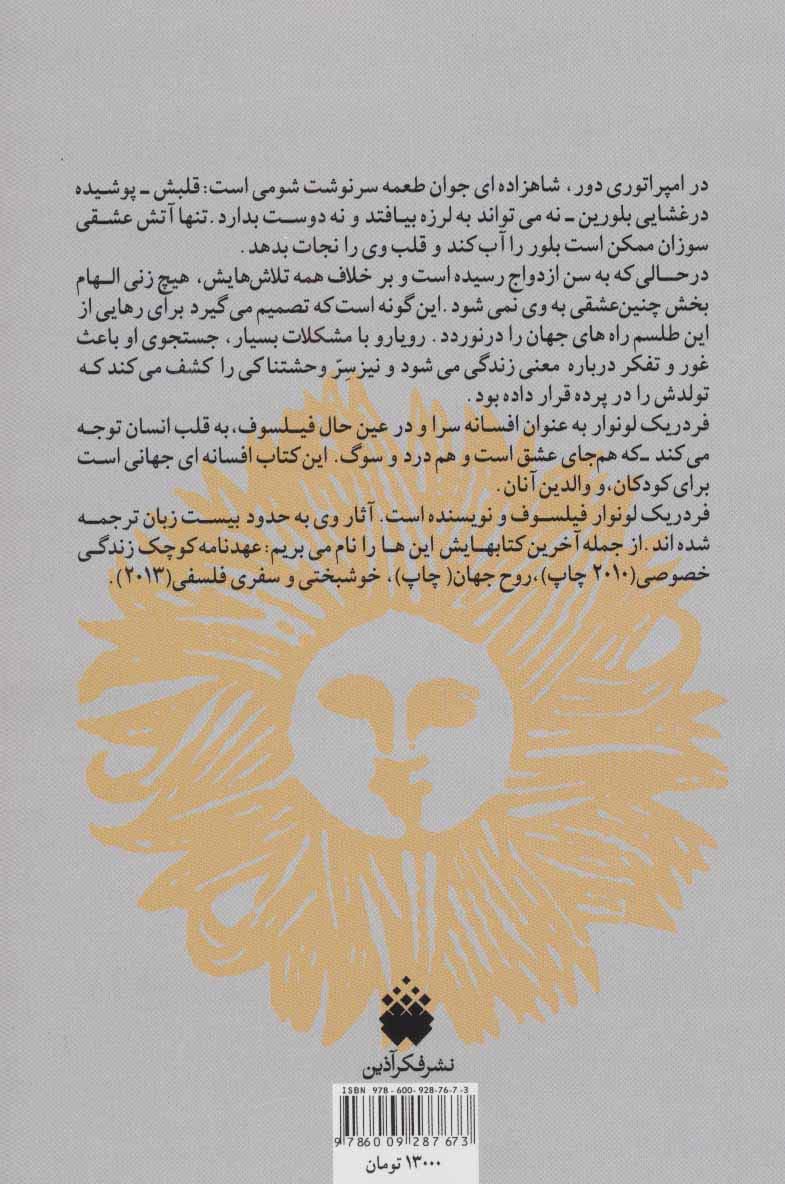 در امپراتوری دور، شاهزاده ای جوان طعمه سرنوشت شومی است: قلبش ـ پوشیده
درغشایی بلورین ـ نه می تواند به لرزه بیافتد و نه دوست بدارد. تنها آتش عشقی
سوزان ممکن است بلور را آب کند و قلب وی را نجات بدهد.
درحالی که به سن ازدواج رسیده است و بر خلاف همه تلاش‌هایش، هیچ زنی الهام
بخش چنین عشقی به وی نمی شود. این گونه است که تصمیم می گیرد برای رهایی از
این طلسم راه های جهان را درنوردد. رویارو با مشکلات بسیار، جستجوی او باعث
غور و تفکر درباره معنی زندگی می شود و نیز سِرّ وحشتناکی را کشف می کند که
تولدش را در پرده قرار داده بود.
فردریک لونوار به عنوان افسانه سرا و در عین حال فیلسوف، به قلب انسان توجه
می کند ـ که هم جای عشق است و هم درد و سوگ. این کتاب افسانه ای جهانی است
برای کودکان، و والدین آنان.
فردریک لونوار فیلسوف و نویسنده است. آثار وی به حدود بیست زبان ترجمه
شده اند. از جمله آخرین کتابهایش این ها را نام می بریم: عهدنامه کوچک زندگی
خصوصی(۲۰۱۰ چاپ)، روح جهان( چاپ)، خوشبختی و سفری فلسفی(۲۰۱۳).
نشر فکر آذین
ISBN 978-600-928-76-7-3
9 786009 287673
۱۳۰۰۰ تومان